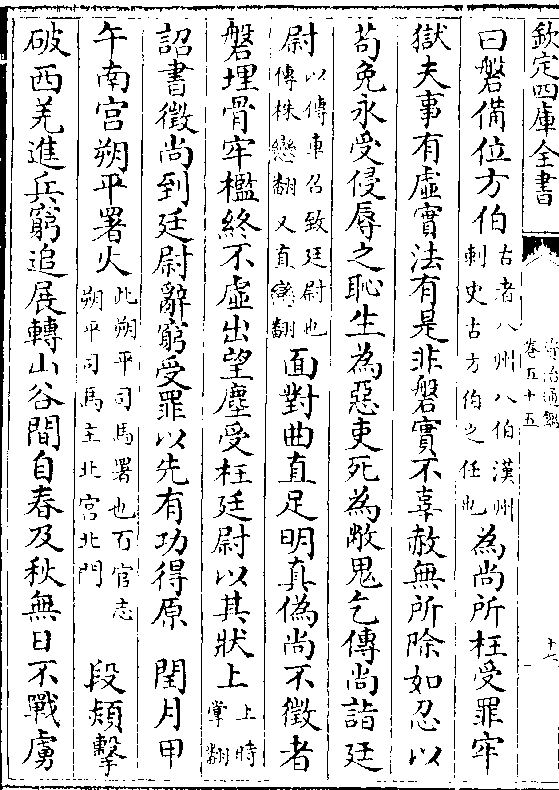 欽定四庫全書
資治通鑑
卷五十五
十一
曰磐備位方伯古者八州八伯漢州刺史古方伯之任也為尚所枉受罪牢
獄夫事有虛實法有是非磐實不辜赦無所除如忍以
苟免永受侵辱之恥生為惡吏死為敝鬼乞傳尚詣廷
尉以傳車召致廷尉也傳株戀翻又直戀翻面對曲直足明真偽尚不徵者
磐埋骨牢檻終不虛出望塵受枉廷尉以其狀上上時掌翻
詔書徵尚到廷尉辭窮受罪以先有功得原 閏月甲
午南宮朔平署火此朔平司馬署也百官志朔平司馬主北宮北門 段熲擊
破西羌進兵窮追展轉山谷間自春及秋無日不戰虜